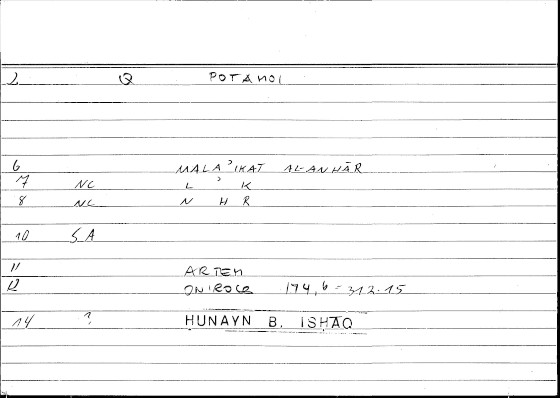 2 Q POTAMOI
6 MALAʾIKAT AL-ANHĀR
7 NC L ʾ K
8 NC N H R
10 SA
11 ARTEM
12 ONIROCR 174,6 = 312.15
14 ? HUNAYN B. ISHAQ